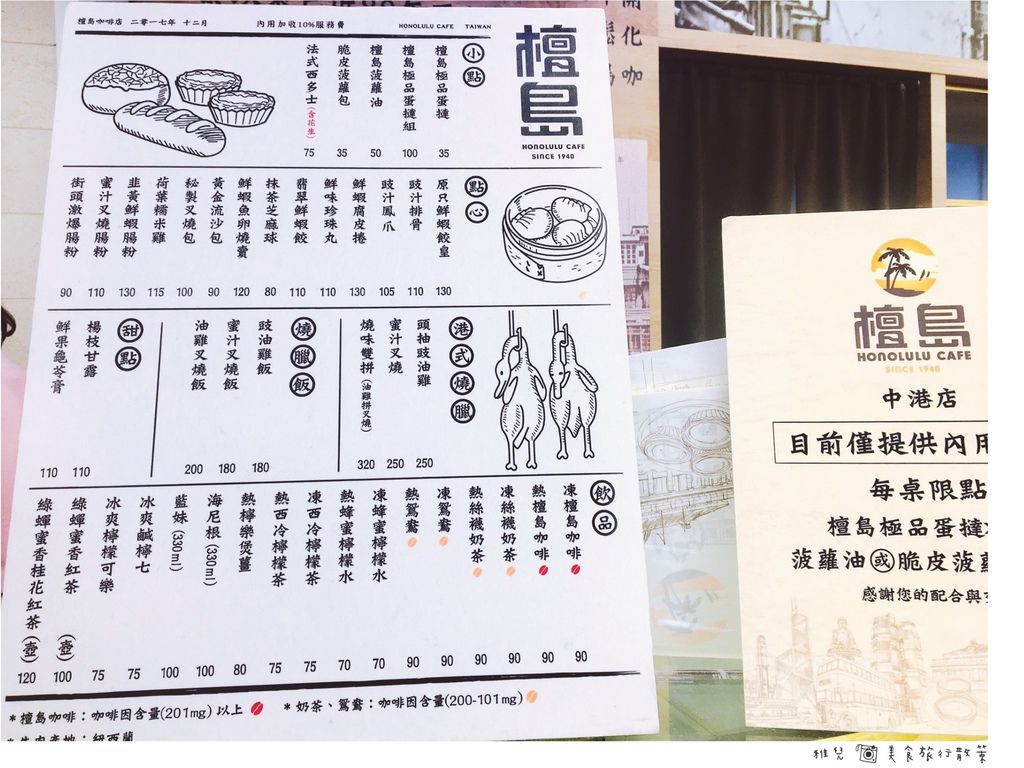 檀島咖啡店 二零一七年 十二月
內用加收10%服務費
HONOLULU CAFE TAIWAN
檀島
HONOLULU CAFE
SINCE 1940
小點
檀島極品蛋撻 35
檀島極品蛋撻組 100
檀島菠蘿油 50
脆皮菠蘿包 35
法式西多士(含花生) 75
點心
原只鮮蝦餃皇 130
豉汁排骨 110
豉汁鳳爪 105
鮮蝦腐皮捲 130
鮮味珍珠丸 110
翡翠鮮蝦餃 110
抹茶芝麻球 80
鮮蝦魚卵燒賣 120
黃金流沙包 90
秘製叉燒包 100
荷葉糯米雞 115
韭黃鮮蝦腸粉 130
蜜汁叉燒腸粉 110
街頭激爆腸粉 90
港式燒臘
頭抽豉油雞 250
蜜汁叉燒 250
燒味雙拼(油雞拼叉燒) 320
燒臘飯
豉油雞飯 180
蜜汁叉燒飯 180
油雞叉燒飯 200
甜點
楊枝甘露 110
鮮果龜苓膏 110
飲品
凍檀島咖啡 90
熱檀島咖啡 90
凍絲襪奶茶 90
熱絲襪奶茶 90
凍鴛鴦 90
熱鴛鴦 90
凍蜂蜜檸檬水 70
熱蜂蜜檸檬水 70
凍西冷檸檬茶 75
熱西冷檸檬茶 75
熱檸樂煲薑 80
海尼根(330ml) 100
藍妹(330ml) 100
冰爽鹹檸七 75
冰爽檸檬可樂 75
綠蟬蜜香紅茶(壺) 100
綠蟬蜜香桂花紅茶(壺) 120
*檀島咖啡：咖啡因含量(201mg)以上
*奶茶、鴛鴦：咖啡因含量(200-101mg)
*牛肉產地：紐西蘭
檀島
HONOLULU CAFE
SINCE 1940
中港店
目前僅提供內用
每桌限點
檀島極品蛋撻
菠蘿油或脆皮菠蘿
感謝您的配合與
雅兒 美食旅行散策